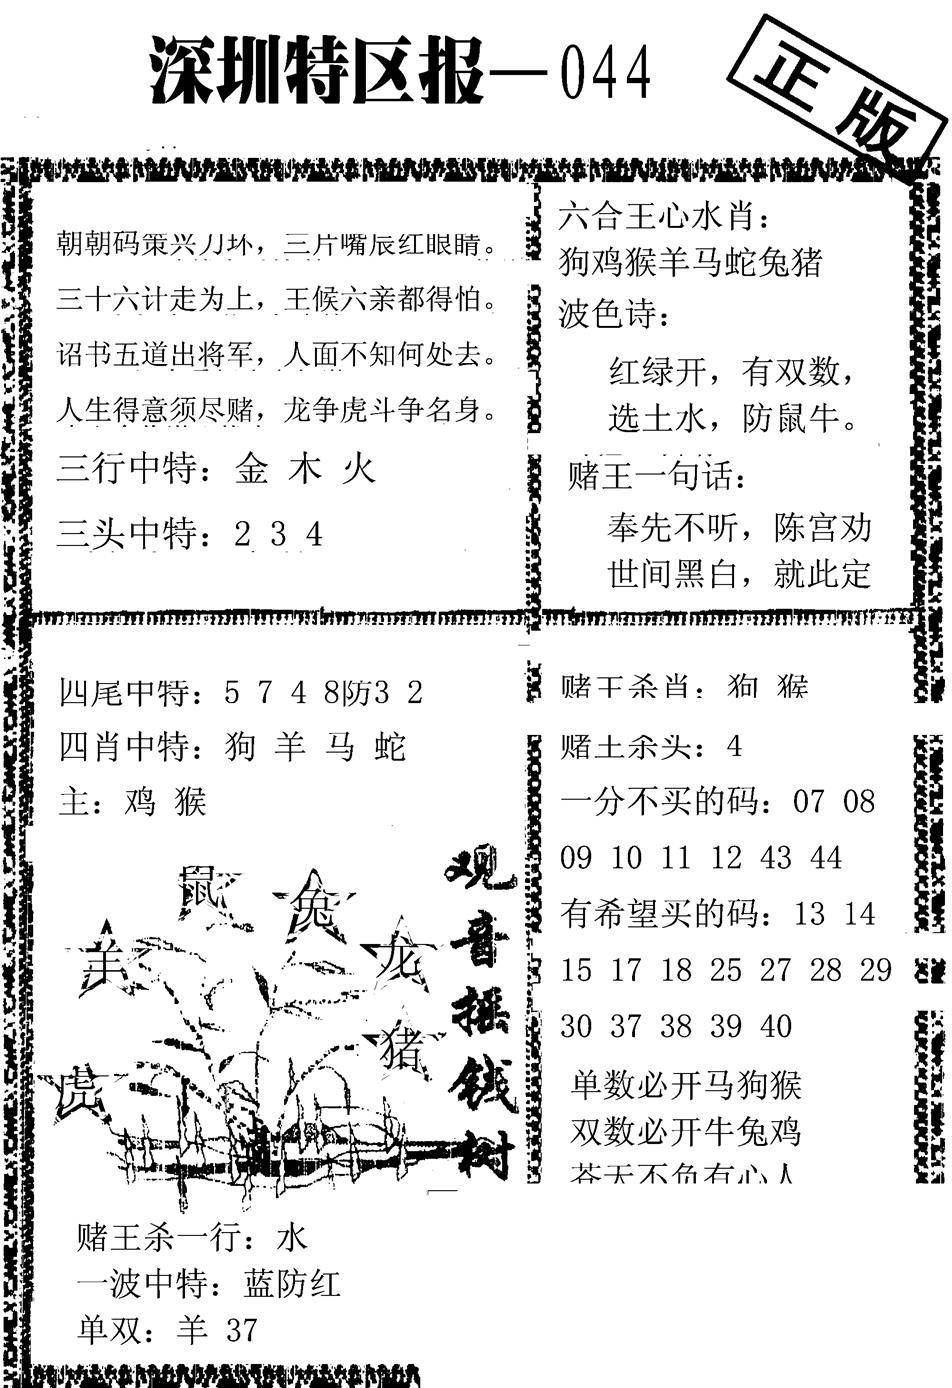 深圳特区报—044
正版
朝朝码策兴刀坏，三片嘴唇红眼睛。
三十六计走为上，王候六亲都得怕。
诏书五道出将军，人面不知何处去。
人生得意须尽赌，龙争虎斗争名身。
三行中特：金 木 火
三头中特：2 3 4
六合王心水肖：
狗鸡猴羊马蛇兔猪
波色诗：
红绿开，有双数，
选土水，防鼠牛。
赌王一句话：
奉先不听，陈宫劝
世间黑白，就此定
四尾中特：5 7 4 8防3 2
四肖中特：狗 羊 马 蛇
主：鸡 猴
鼠
兔
羊
龙
猪
虎
观音摇钱树
赌王杀一行：水
一波中特：蓝防红
单双：羊 37
赌王杀肖：狗 猴
赌王杀头：4
一分不买的码：07 08
09 10 11 12 43 44
有希望买的码：13 14
15 17 18 25 27 28 29
30 37 38 39 40
单数必开马狗猴
双数必开牛兔鸡
苍天不负有心人